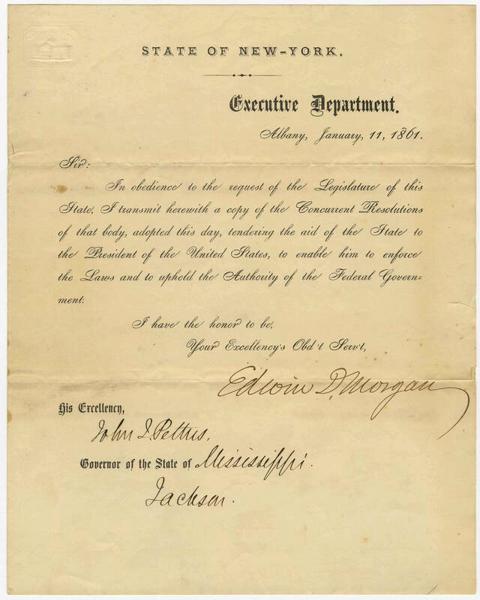 STATE OF NEW-YORK.
Executive Department.
Albany, January, 11, 1861.
Sir:
In obedience to the request of the Legislature of this
State, I transmit herewith a copy of the Concurrent Resolutions
of that body, adopted this day, tendering the aid of the State to
the President of the United States, to enable him to enforce
the Laws and to uphold the Authority of the Federal Govern-
ment.
I have the honor to be,
Your Excellency's Obd't Serv't,
Edwin D. Morgan
His Excellency,
John J. Pettus,
Governor of the State of Mississippi.
Jackson.